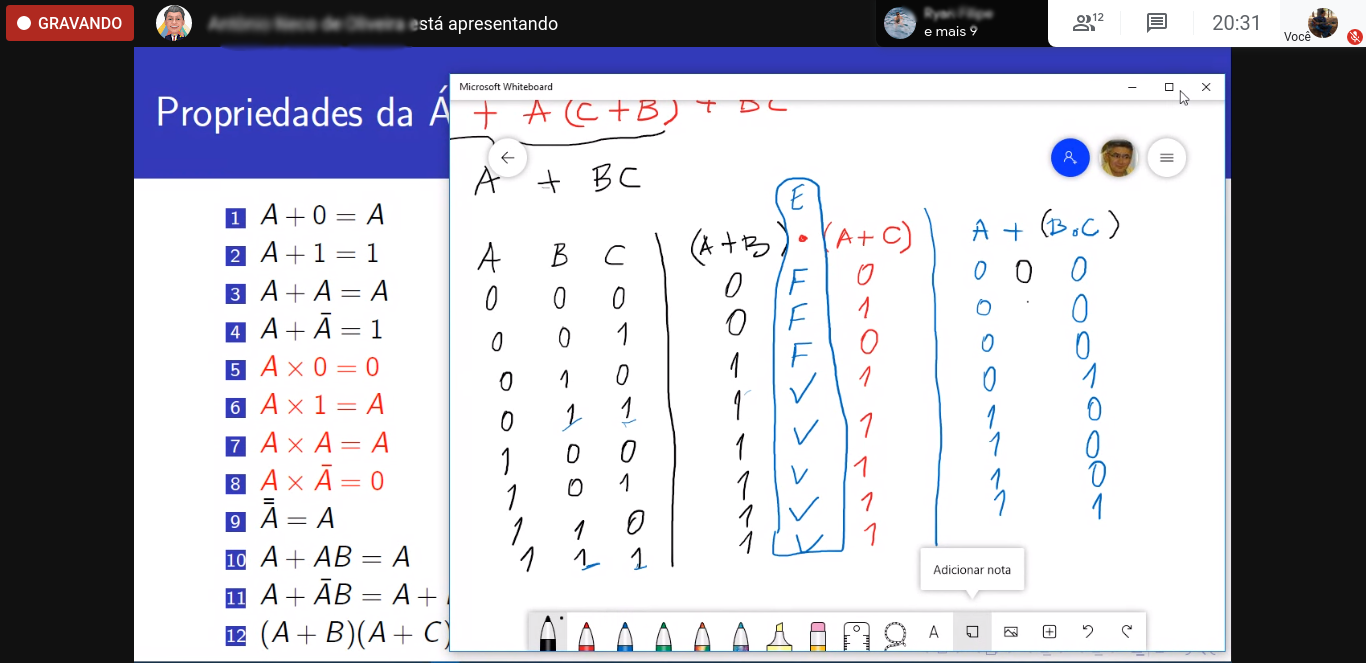 GRAVANDO
está apresentando
e mais 9
12
20:31
Você
Propriedades da Á
1 A + 0 = A
2 A + 1 = 1
3 A + A = A
4 A + Ā = 1
5 A × 0 = 0
6 A × 1 = A
7 A × A = A
8 A × Ā = 0
9 A̿ = A
10 A + AB = A
11 A + ĀB = A +
12 (A + B)(A + C)
Microsoft Whiteboard
+ A (C + B) + BC
A + BC
E
A B C (A + B) • (A + C) A + (B.C)
0 0 0 0 F 0 0 0 0
0 0 1 0 F 1 0 0
0 1 0 1 F 0 0 0
0 1 1 1 V 1 0 1
1 0 0 1 V 1 1 0
1 0 1 1 V 1 1 0
1 1 0 1 V 1 1 0
1 1 1 1 V 1 1 1
Adicionar nota
A